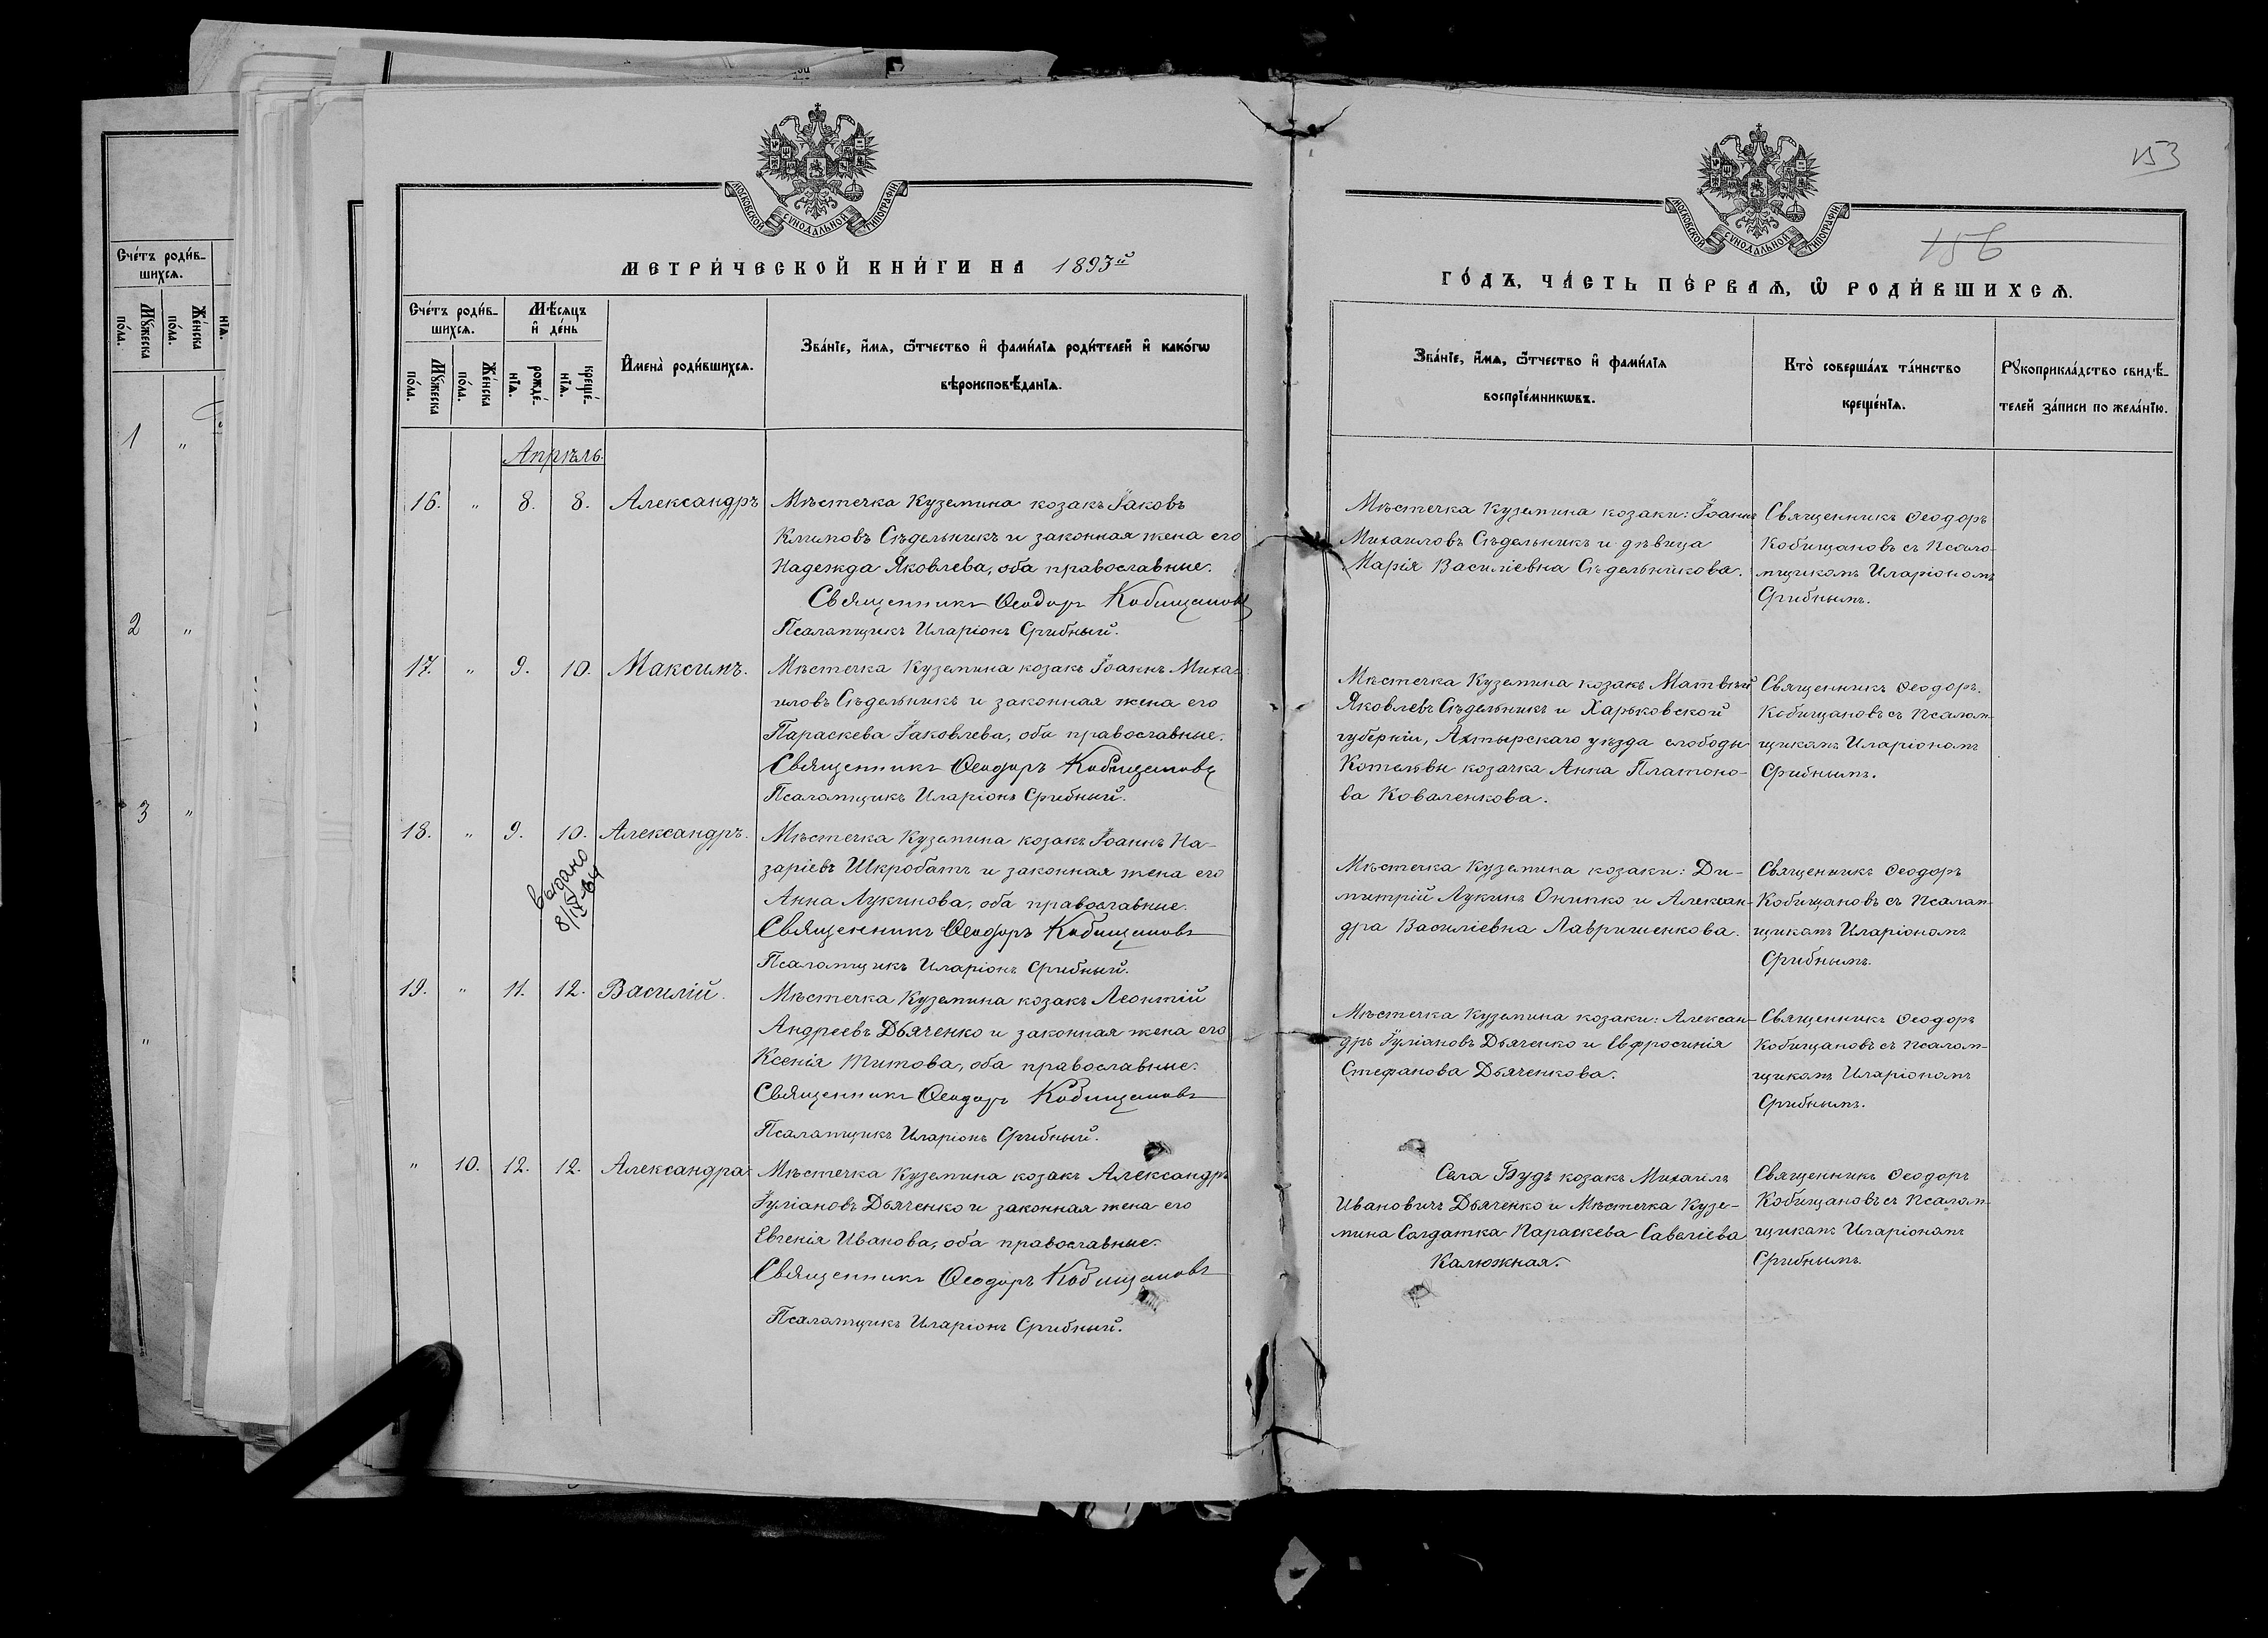 МОСКОВСКОЙ СѴНОДАЛЬНОЙ ТИПОГРАФІИ
МЕТРИ́ЧЕСКОЙ КНИ́ГИ НА 1893й
Сче́тъ роди́в-
шихся.
Мꙋ́жеска по́ла.
Же́нска по́ла.
Мѣ́сяцъ и҆ де́нь
рожде́-нїѧ.
креще́-нїѧ.
И҆мена̀ роди́вшихсѧ.
Зва́нїе, и҆́мѧ, ѻ҆́тчество и҆ фами́лїѧ роди́телей и҆ како́гѡ
вѣроисповѣ́данїѧ.
Апрѣль.
16. " 8. 8. Александръ
Мѣстечка Куземина козакъ Іаковъ
Климовъ Сѣдельникъ и законная жена его
Надежда Яковлева, оба православные.
Священникъ Ѳеодоръ Кобищановъ
Псаломщикъ Иларіонъ Срибный.
17. " 9. 10. Максимъ.
Мѣстечка Куземина козакъ Іоаннъ Михаи-
иловъ Сѣдельникъ и законная жена его
Параскева Іаковлева, оба православные.
Священникъ Ѳеодоръ Кобищановъ
Псаломщикъ Иларіонъ Срибный.
18. " 9. 10. Александръ.
выдано
8/IV-64
Мѣстечка Куземина козакъ Іоаннъ На-
заріевъ Шкробатъ и законная жена его
Анна Лукинова, оба православные.
Священникъ Ѳеодоръ Кобищановъ
Псаломщикъ Иларіонъ Срибный.
19. " 11. 12. Василій.
Мѣстечка Куземина козакъ Леонтій
Андреевъ Дьяченко и законная жена его
Ксенія Титова, оба православные.
Священникъ Ѳеодоръ Кобищановъ
Псаломщикъ Иларіонъ Срибный.
" 10. 12. 12. Александра
Мѣстечка Куземина козакъ Александръ
Іуліановъ Дьяченко и законная жена его
Евгенія Иванова, оба православные.
Священникъ Ѳеодоръ Кобищановъ
Псаломщикъ Иларіонъ Срибный.
153
156
МОСКОВСКОЙ СѴНОДАЛЬНОЙ ТИПОГРАФІИ
ГО́ДЪ, ЧА́СТЬ ПЕ́РВАѦ, Ѡ҆ РОДИ́ВШИХСѦ.
Зва́нїе, и҆́мѧ, ѻ҆́тчество и҆ фами́лїѧ
воспрїе́мникѡвъ.
Кто̀ соверша́лъ та́инство
креще́нїѧ.
Рꙋкоприкла́дство свидѣ́-
телей за́писи по жела́нїю.
Мѣстечка Куземина козаки: Іоаннъ
Михаиловъ Сѣдельникъ и дѣвица
Марія Василіевна Сѣдельникова.
Священникъ Ѳеодоръ
Кобищановъ съ Псало-
мщикомъ Иларіономъ
Срибнымъ.
Мѣстечка Куземина козакъ Матвѣй
Яковлевъ Сѣдельникъ и Харьковской
губерніи, Ахтырскаго уѣзда слободы
Котельвы козачка Анна Платоно-
ва Коваленкова.
Священникъ Ѳеодоръ.
Кобищановъ съ Псалом-
щикомъ Иларіономъ
Срибнымъ.
Мѣстечка Куземина козаки: Ди-
митрій Лукинъ Онипко и Алексан-
дра Василіевна Лавришенкова.
Священникъ Ѳеодоръ
Кобищановъ съ Псалом-
щикомъ Иларіономъ
Срибнымъ.
Мѣстечка Куземина козаки: Алексан-
дръ Іуліановъ Дьяченко и Евфросинія
Стефанова Дьяченкова.
Священникъ Ѳеодоръ
Кобищановъ съ Псалом-
щикомъ Иларіономъ
Срибнымъ.
Села Будъ козакъ Михаилъ
Ивановичъ Дьяченко и Мѣстечка Кузе-
мина Солдатка Параскева Савеліева
Калюжная.
Священникъ Ѳеодоръ
Кобищановъ съ Псалом-
щикомъ Иларіономъ
Срибнымъ.
Сче́тъ роди́в-
шихся.
Мꙋ́жеска по́ла.
Же́нска по́ла.
нїѧ.
1 "
2 "
3 "
"